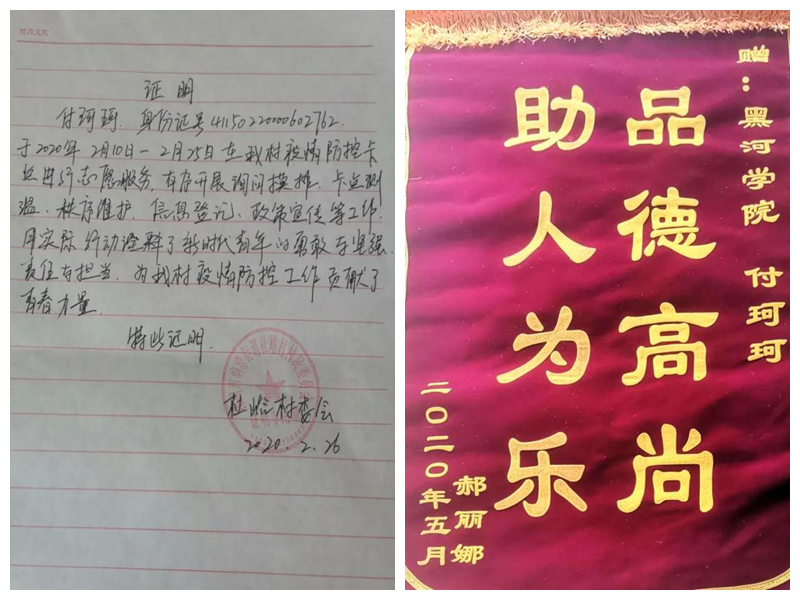 证明
付珂珂，身份证号41150220000602762.
于2020年2月10日—2月25日在我村疫情防控卡
点进行志愿服务，有序开展询问摸排、卡点测
温、秩序维护、信息登记、政策宣传等工作，
用实际行动诠释了新时代青年的勇敢与坚强、
责任与担当，为我村疫情防控工作贡献了
青春力量.
特此证明.
村委会
2020.2.26
赠：黑河学院 付珂珂
品德高尚
助人为乐
郝丽娜
二〇二〇年五月